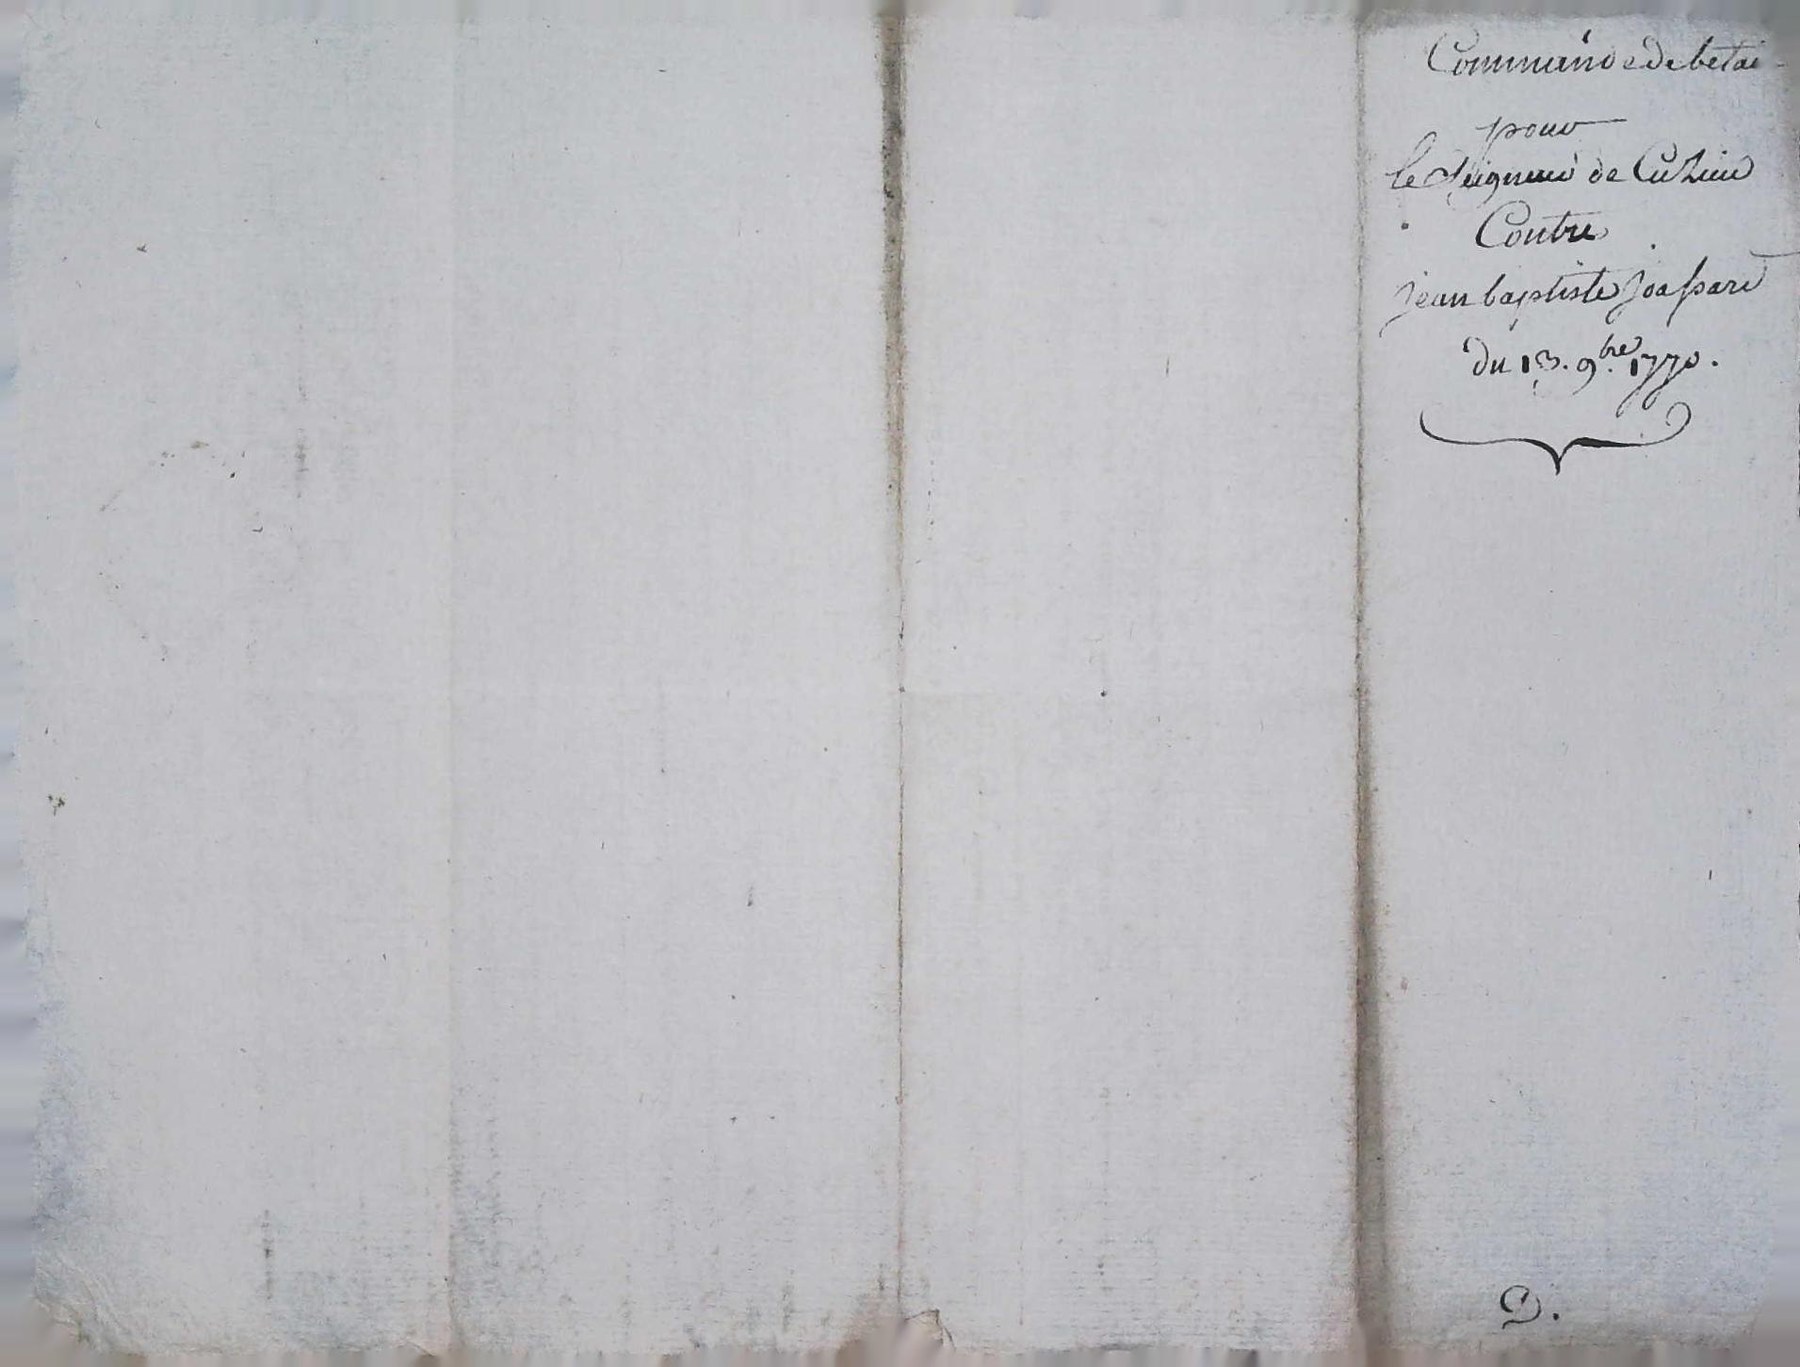 Commande de betai
pour
le Seigneur de Cuzieu
Contre
jean baptiste joassard
du 13. 9.bre 1770.
D.